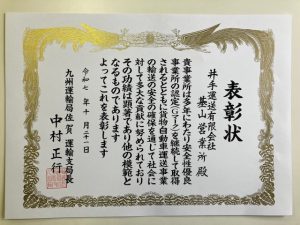 表彰状
井手運送有限会社
基山営業所 殿
貴事業所は多年にわたり安全性優良
事業所の認定(Gマーク)を継続して取得
されるとともに貨物自動車運送事業
の輸送の安全の確保を通じて社会に
対して多大な貢献に努められており
その功績は顕著であり他の模範と
なるものであります
よってこれを表彰します
令和七年十月二十一日
九州運輸局佐賀運輸支局長
中村正行